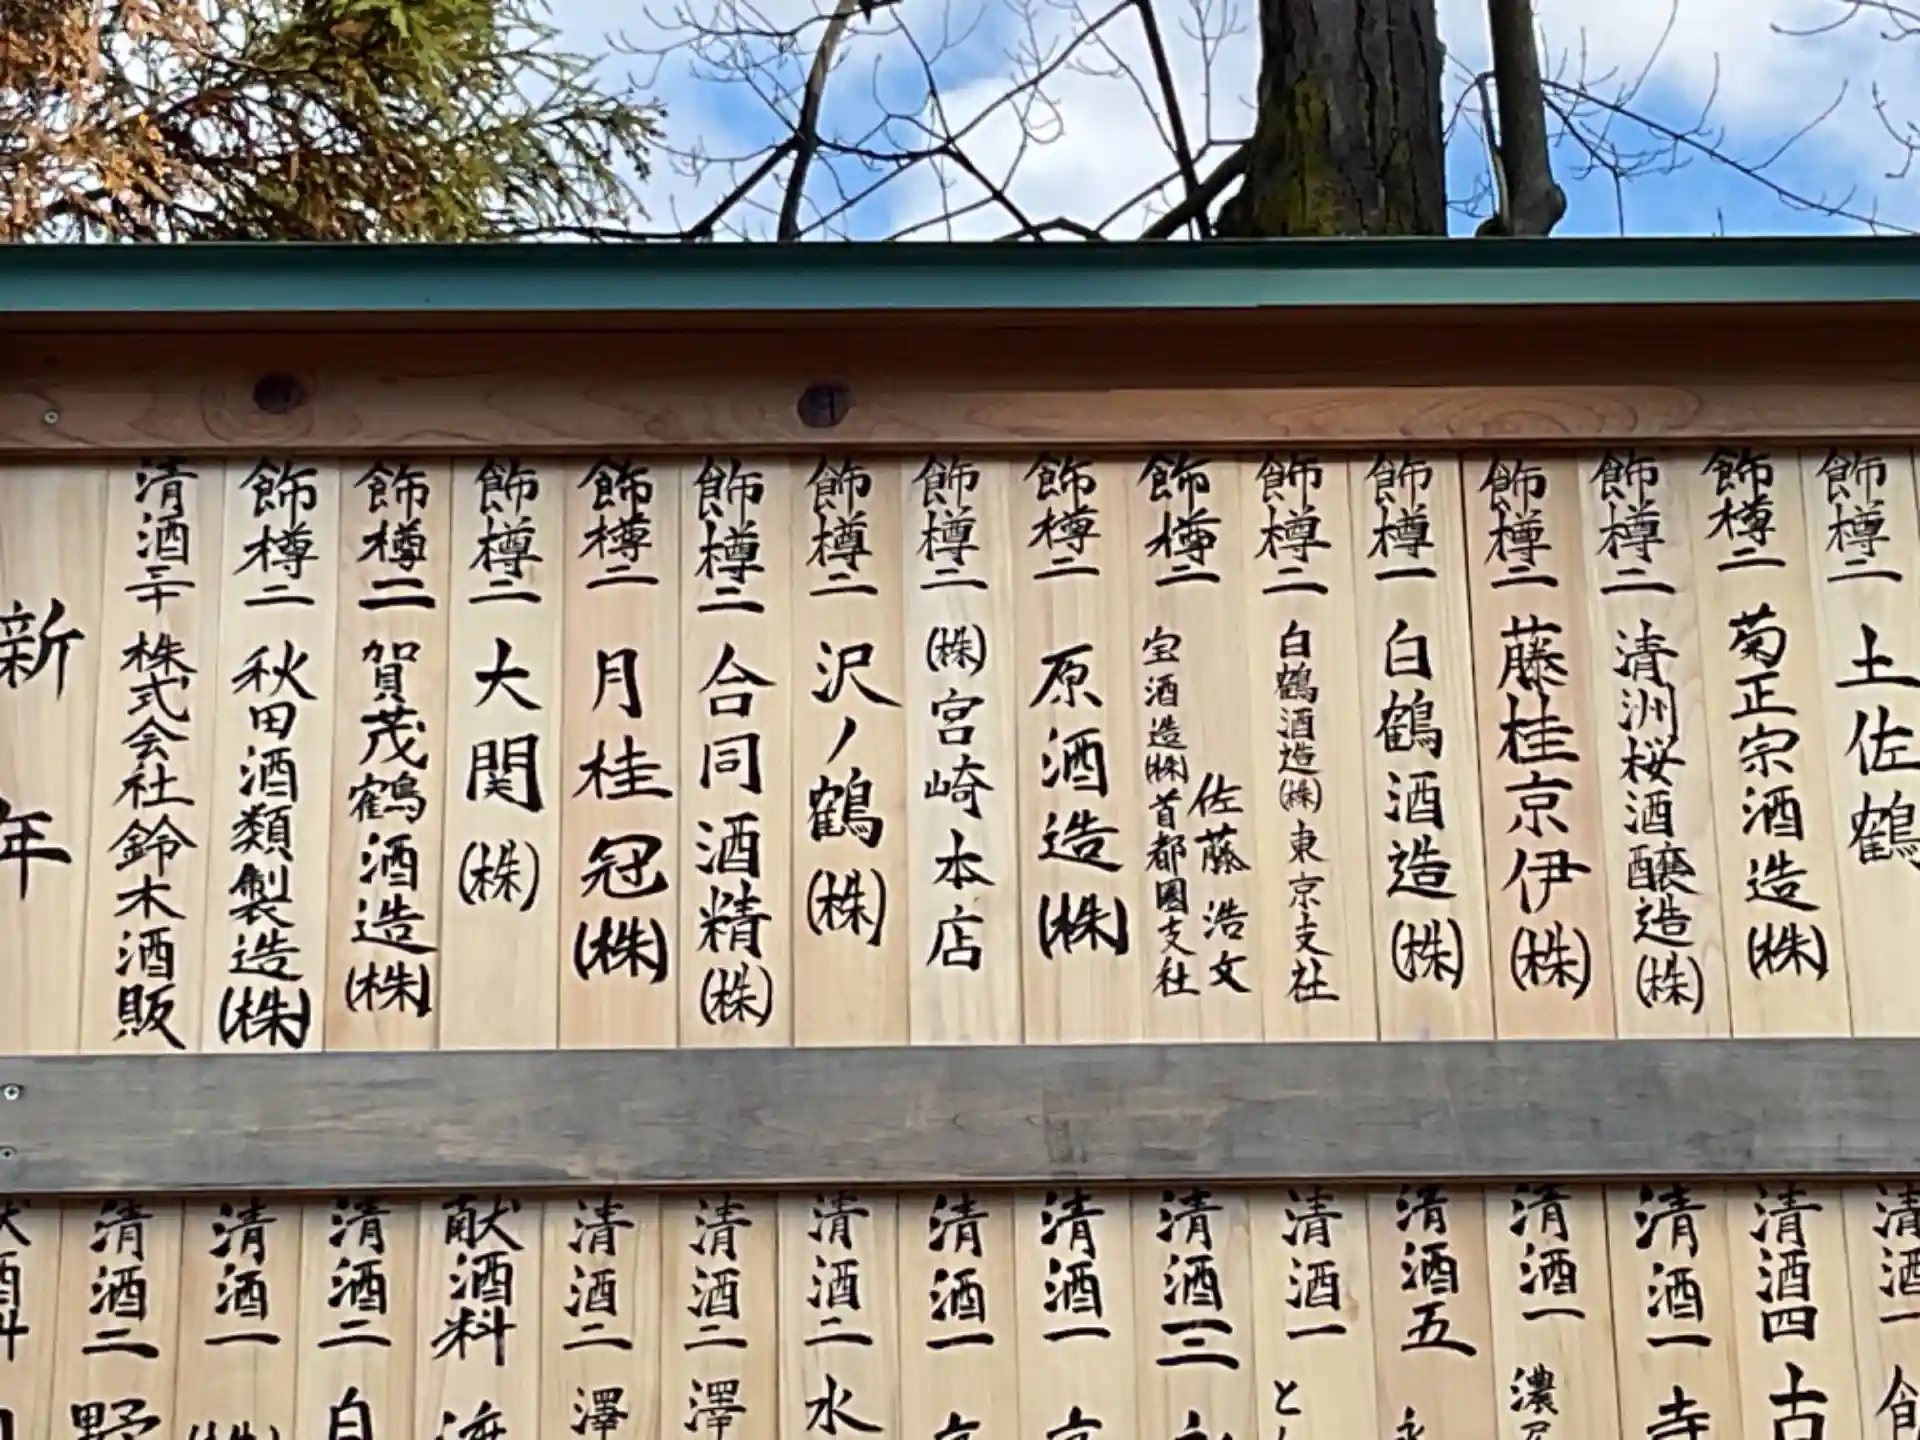 飾樽二 土佐鶴
飾樽二 菊正宗酒造(株)
飾樽二 清洲桜酒醸造(株)
飾樽二 藤桂京伊(株)
飾樽一 白鶴酒造(株)
飾樽二 白鶴酒造(株)東京支社
飾樽二 宝酒造(株)首都圏支社 佐藤浩文
飾樽二 原酒造(株)
飾樽二 (株)宮崎本店
飾樽二 沢ノ鶴(株)
飾樽二 合同酒精(株)
飾樽二 月桂冠(株)
飾樽二 大関(株)
飾樽二 賀茂鶴酒造(株)
飾樽二 秋田酒類製造(株)
清酒二十 株式会社鈴木酒販
新年
清酒一
清酒四 古
清酒一 寺
清酒一 濃
清酒五 永
清酒一 と
清酒三
清酒一
清酒一
清酒二 水
清酒二 澤
清酒二 澤
献酒料 渡
清酒二
清酒一 (株)
清酒二 野
献酒料